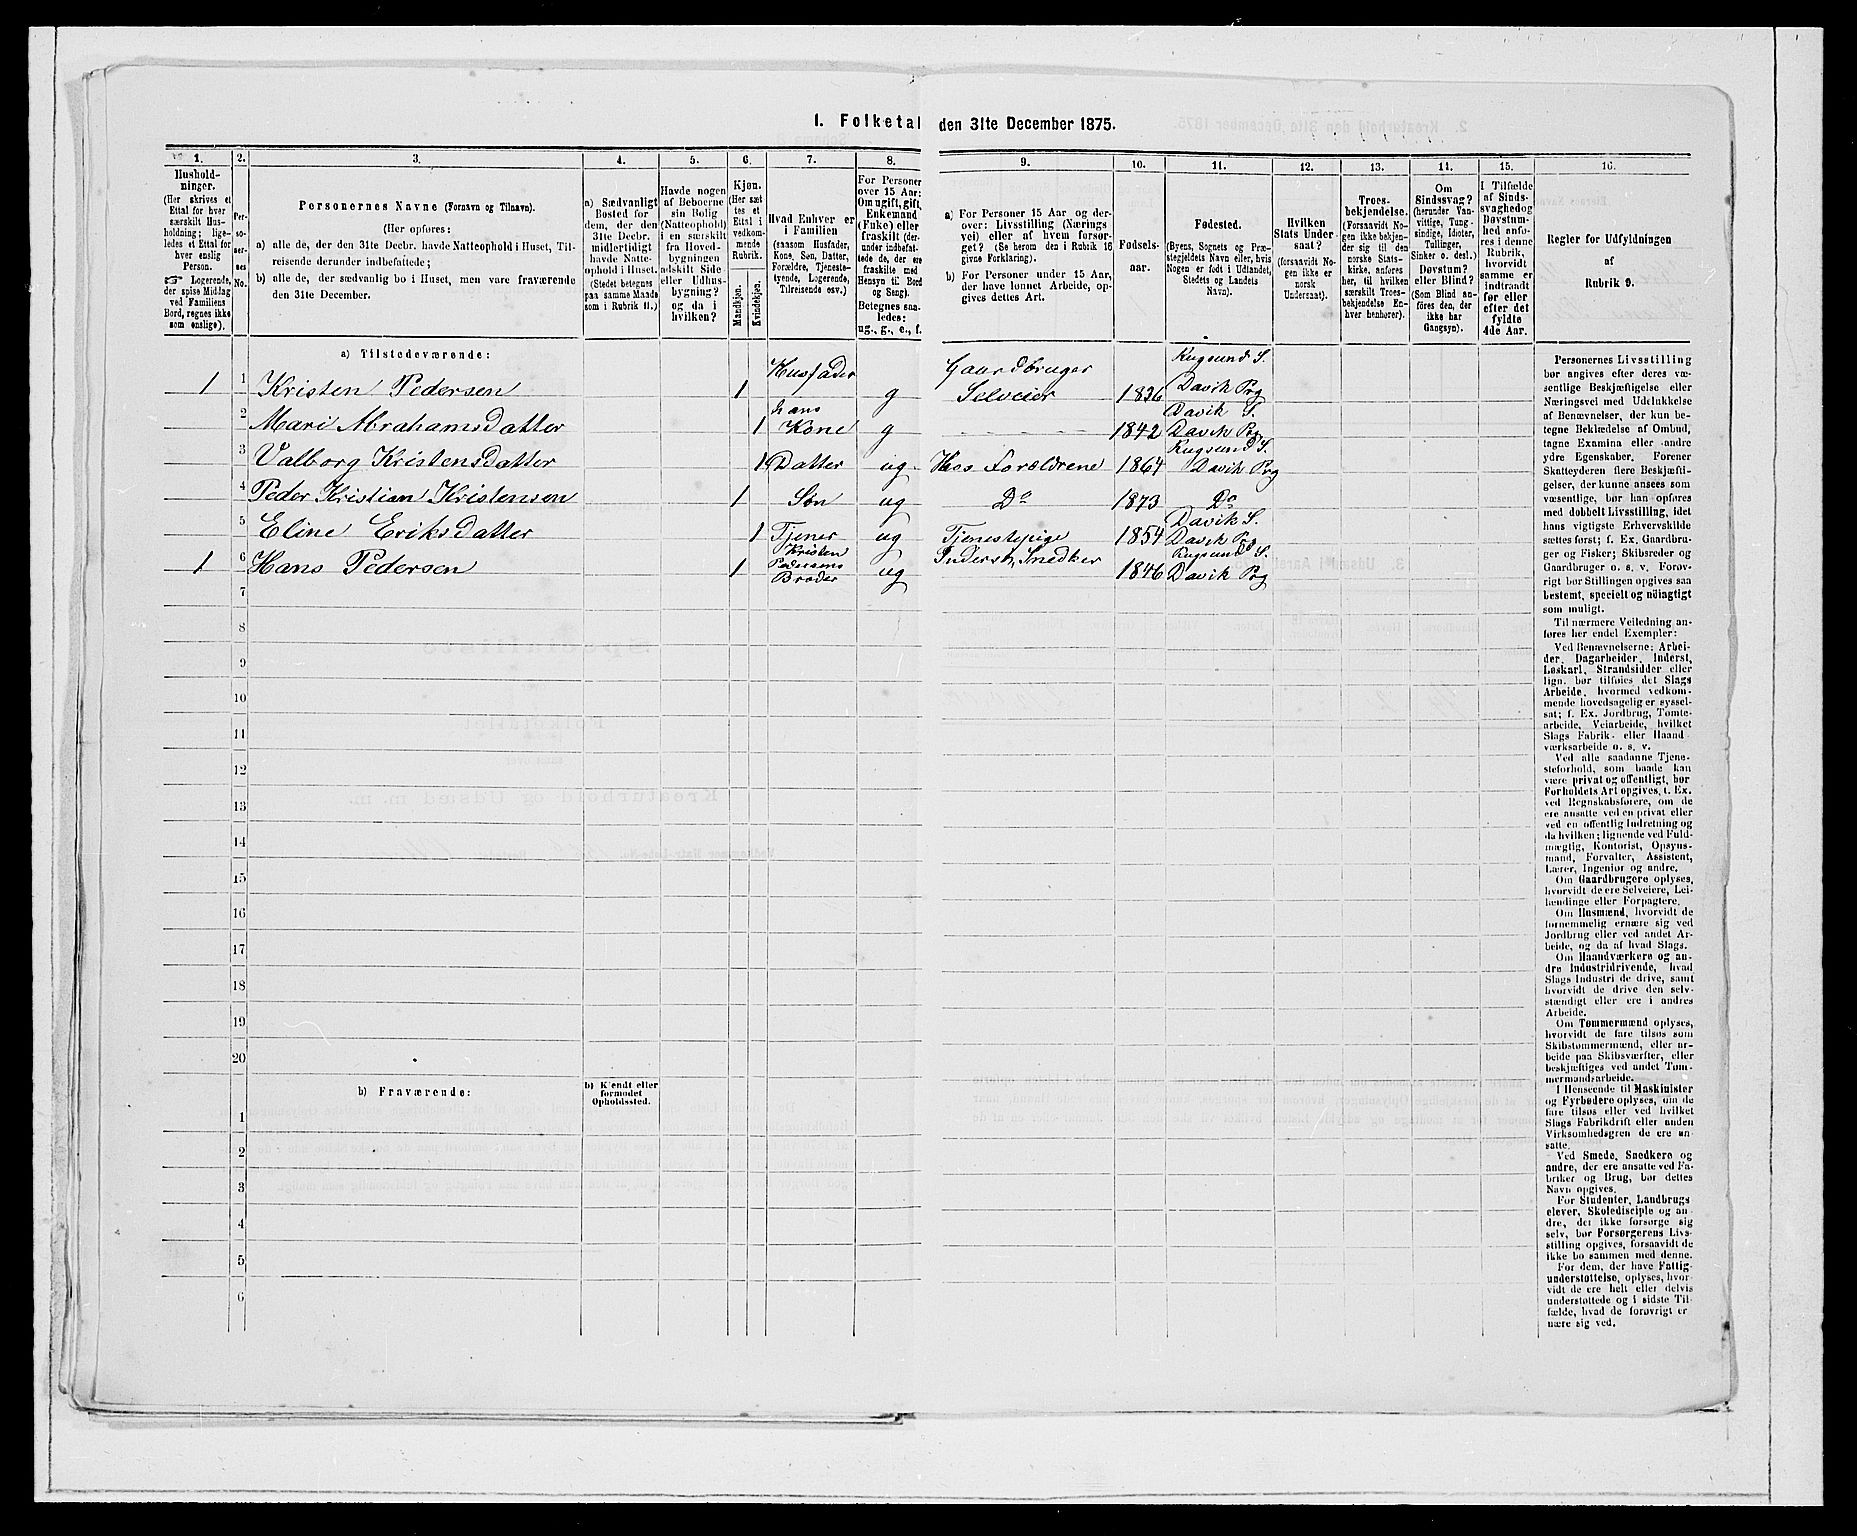 1. Folketal den 31te December 1875.
1. 2. 3. 4. 5. 6. 7. 8. 9. 10. 11. 12. 13. 14. 15. 16.
Hushold-
ninger.
(Her skrives et
Ettal for hver
særskilt Hus-
holdning; lige-
ledes et Ettal for
hver enslig
Person.
☞ Logerende,
der spise Middag
ved Familiens
Bord, regnes ikke
som enslige).
Per-
so-
ner-
nes
No.
Personernes Navne (Fornavn og Tilnavn).
(Her opføres:
a) alle de, der den 31te Decbr. havde Natteophold i Huset, Til-
reisende derunder indbefattede;
b) alle de, der sædvanlig bo i Huset, men vare fraværende
den 31te December.
a) Sædvanligt
Bosted for
dem, der den
31te Decbr.
midlertidigt
havde Natte-
ophold i Huset.
(Stedet betegnes
paa samme Maade
som i Rubrik 11.)
Havde nogen
af Beboerne
sin Bolig
(Natteophold)
i en særskilt
fra Hoved-
bygningen
adskilt Side-
eller Udhus-
bygning?
og da i
hvilken?
Kjøn.
(Her sæt
tes et
Ettal i
vedkom-
mende
Rubrik.
Mandkjøn.
Kvindekjøn.
Hvad Enhver er
i Familien
(saasom Husfader,
Kone, Søn, Datter,
Forældre, Tjeneste-
tyende, Logerende,
Tilreisende osv.)
For Personer
over 15 Aar:
Om ugift, gift,
Enkemand
(Enke) eller
fraskilt (der-
under indbefat-
tede de, der ere
fraskilte med
Hensyn til Bord
og Seng).
Betegnes saa-
ledes:
ug., g., e., f.
a) For Personer 15 Aar og der-
over: Livsstilling (Nærings
vei) eller af hvem forsør-
get? (Se herom den i Rubrik 16
givne Forklaring).
b) For Personer under 15 Aar,
der have lønnet Arbeide, op-
gives dettes Art.
Fødsels-
aar.
Fødested.
(Byens, Sognets og Præ-
stegjeldets Navn eller, hvis
Nogen er født i Udlandet,
Stedets og Landets
Navn).
Hvilken
Stats Under-
saat?
(forsaavidt No-
gen ikke er
norsk
Undersaat).
Troes-
bekjendelse.
(Forsaavidt No-
gen ikke bekjen-
der sig til den
norske Stats-
kirke, anføres
her, til hvilken
særskilt Troes-
bekjendelse En-
hver henhører).
Om
Sindssvag?
(herunder Van-
vittige, Tung-
sindige, Idioter,
Tullinger,
Sinker o. desl.)
Døvstum?
eller Blind?
(Som Blind an-
føres den, der
ikke har
Gangsyn).
I Tilfælde
af Sinds-
svaghed og
Døvstum-
hed anfø-
res i denne
Rubrik,
hvorvidt
samme er
indtraadt
før eller
efter det
fyldte
4de Aar.
Regler for Udfyldningen
af
Rubrik 9.
a) Tilstedeværende:
1 1 Kristen Pedersen 1 Husfader g Gaardbruger Selveier 1836 Rugsund S. Davik Prg
2 Mari AbrahamsDatter 1 hans Kone g 1842 Davik S. Davik Prg
3 Valborg KristensDatter 1 Datter ug Hos Forældrene 1864 Rugsund S. Davik Prg
4 Peder Kristian Kristensen 1 Søn ug Do 1873 Do
5 Eline EriksDatter 1 Tjener ug Tjenestepige 1854 Davik S. Davik Prg
1 6 Hans Pedersen 1 Kristen Pedersens Broder ug Inderst, Snedker 1846 Rugsund S. Davik Prg
7
8
9
10
11
12
13
14
15
16
17
18
19
20
b) Fraværende:
b) Kjendt eller
formodet
Opholdssted.
1
2
3
4
5
6
Personernes Livsstilling
bør angives efter deres væ-
sentlige Beskjæftigelse eller
Næringsvei med Udelukkelse
af Benævnelser, der kun be-
tegne Beklædelse af Ombud,
tagne Examina eller andre
ydre Egenskaber. Forener
Skatteyderen flere Beskjæfti-
gelser, der kunne ansees som
væsentlige, bør han opføres
med dobbelt Livsstilling, idet
hans vigtigste Erhvervskilde
sættes først; f. Ex. Gaardbru-
ger og Fisker; Skibsreder og
Gaardbruger o. s. v. Forøv-
rigt bør Stillingen opgives saa
bestemt, specielt og nöiagtigt
som muligt.
Til nærmere Veiledning an-
føres her endel Exempler:
Ved Benævnelserne: Arbei-
der, Dagarbeider, Inderst,
Løskarl, Strandsidder eller
lign. bør tilføies det Slags
Arbeide, hvormed vedkom-
mende hovedsagelig er syssel-
sat; f. Ex. Jordbrug, Tømte-
arbeide, Veiarbeide, hvilket
Slags Fabrik- eller Haand
værksarbeide o. s. v.
Ved alle saadanne Tjene-
steforhold, som baade kan
være privat og offentligt, bør
Forholdets Art opgives, t. Ex.
ved Regnskabsførere, om de
ere ansatte ved en privat eller
ved en offentlig Indretning og
da hvilken; lignende ved Fuld-
mægtig, Kontorist, Opsyns-
mand, Forvalter, Assistent,
Lærer, Ingeniør og andre.
Om Gaardbrugere oplyses,
hvorvidt de ere Selveiere, Lei-
lændinge eller Forpagtere.
Om Husmænd, hvorvidt de
fornemmelig ernære sig ved
Jordbrug eller ved andet Ar-
beide, og da af hvad Slags.
Om Haandværkere og an-
dre Industridrivende, hvad
Slags Industri de drive, samt
hvorvidt de drive den selv-
stændigt eller ere i andres
Arbeide.
Om Tømmermænd oplyses,
hvorvidt de fare tilsøs som
Skibstømmermænd, eller ar-
beide paa Skibsværfter, eller
beskjæftiges ved andet Tøm-
mermandsarbeide.
I Henseende til Maskinister
og Fyrbødere oplyses, om de
fare tilsøs eller ved hvilket
Slags Fabrikdrift eller anden
Virksomhedsgren de ere an-
satte.
Ved Smede, Snedkere og
andre, der ere ansatte ved Fa-
briker og Brug, bør dettes
Navn opgives.
For Studenter, Landbrugs
elever, Skoledisciple og an-
dre, der ikke forsørge sig
selv, bør Forsørgerens Livs-
stilling opgives, forsaavidt de
ikke bo sammen med denne.
For dem, der have Fattig-
understøttelse, oplyses, hvor-
vidt de ere helt eller delvis
understøttede og i sidste Til-
fælde, hvad de forøvrigt er
nære sig ved.